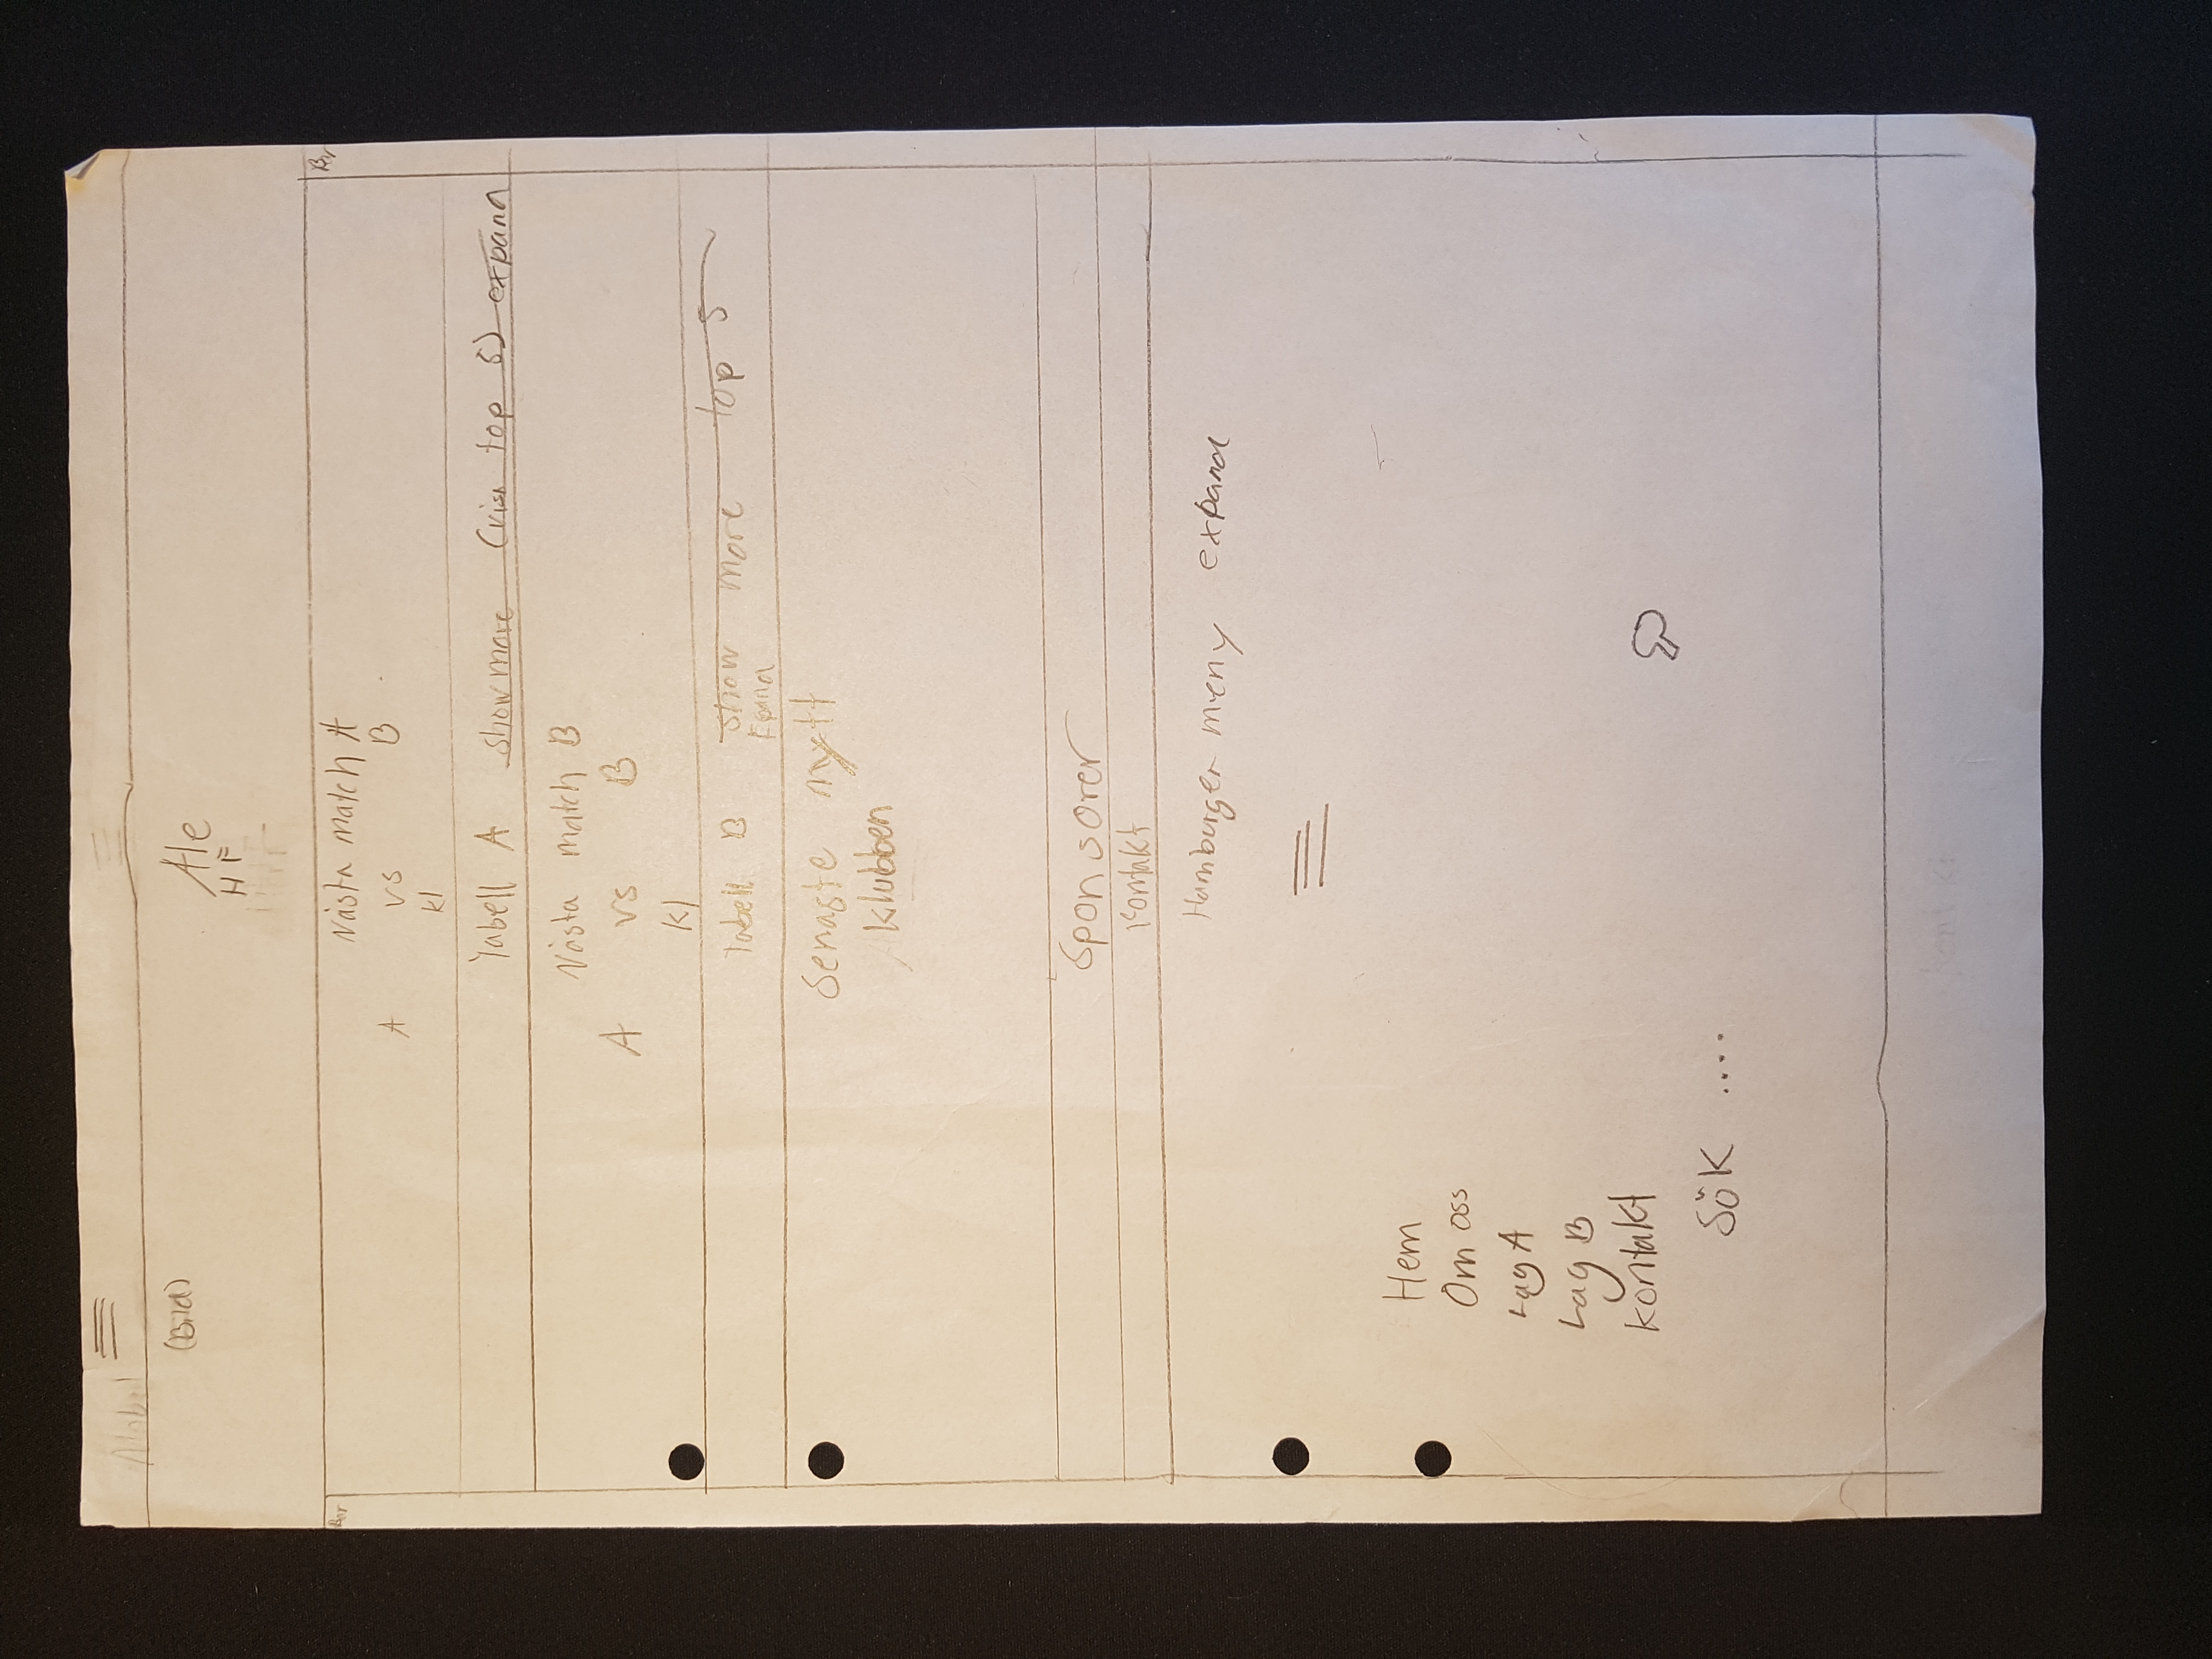 (Bild)
Ale
HF
Bar
Nästa match A
A vs B
kl
Tabell A show more (visa top 5) expand
Nästa match B
A vs B
kl
Tabell B show more top 5
Senaste nytt
klubben
Sponsorer
Kontakt
Hamburger meny expand
Hem
Om oss
Lag A
Lag B
Kontakt
SöK ....